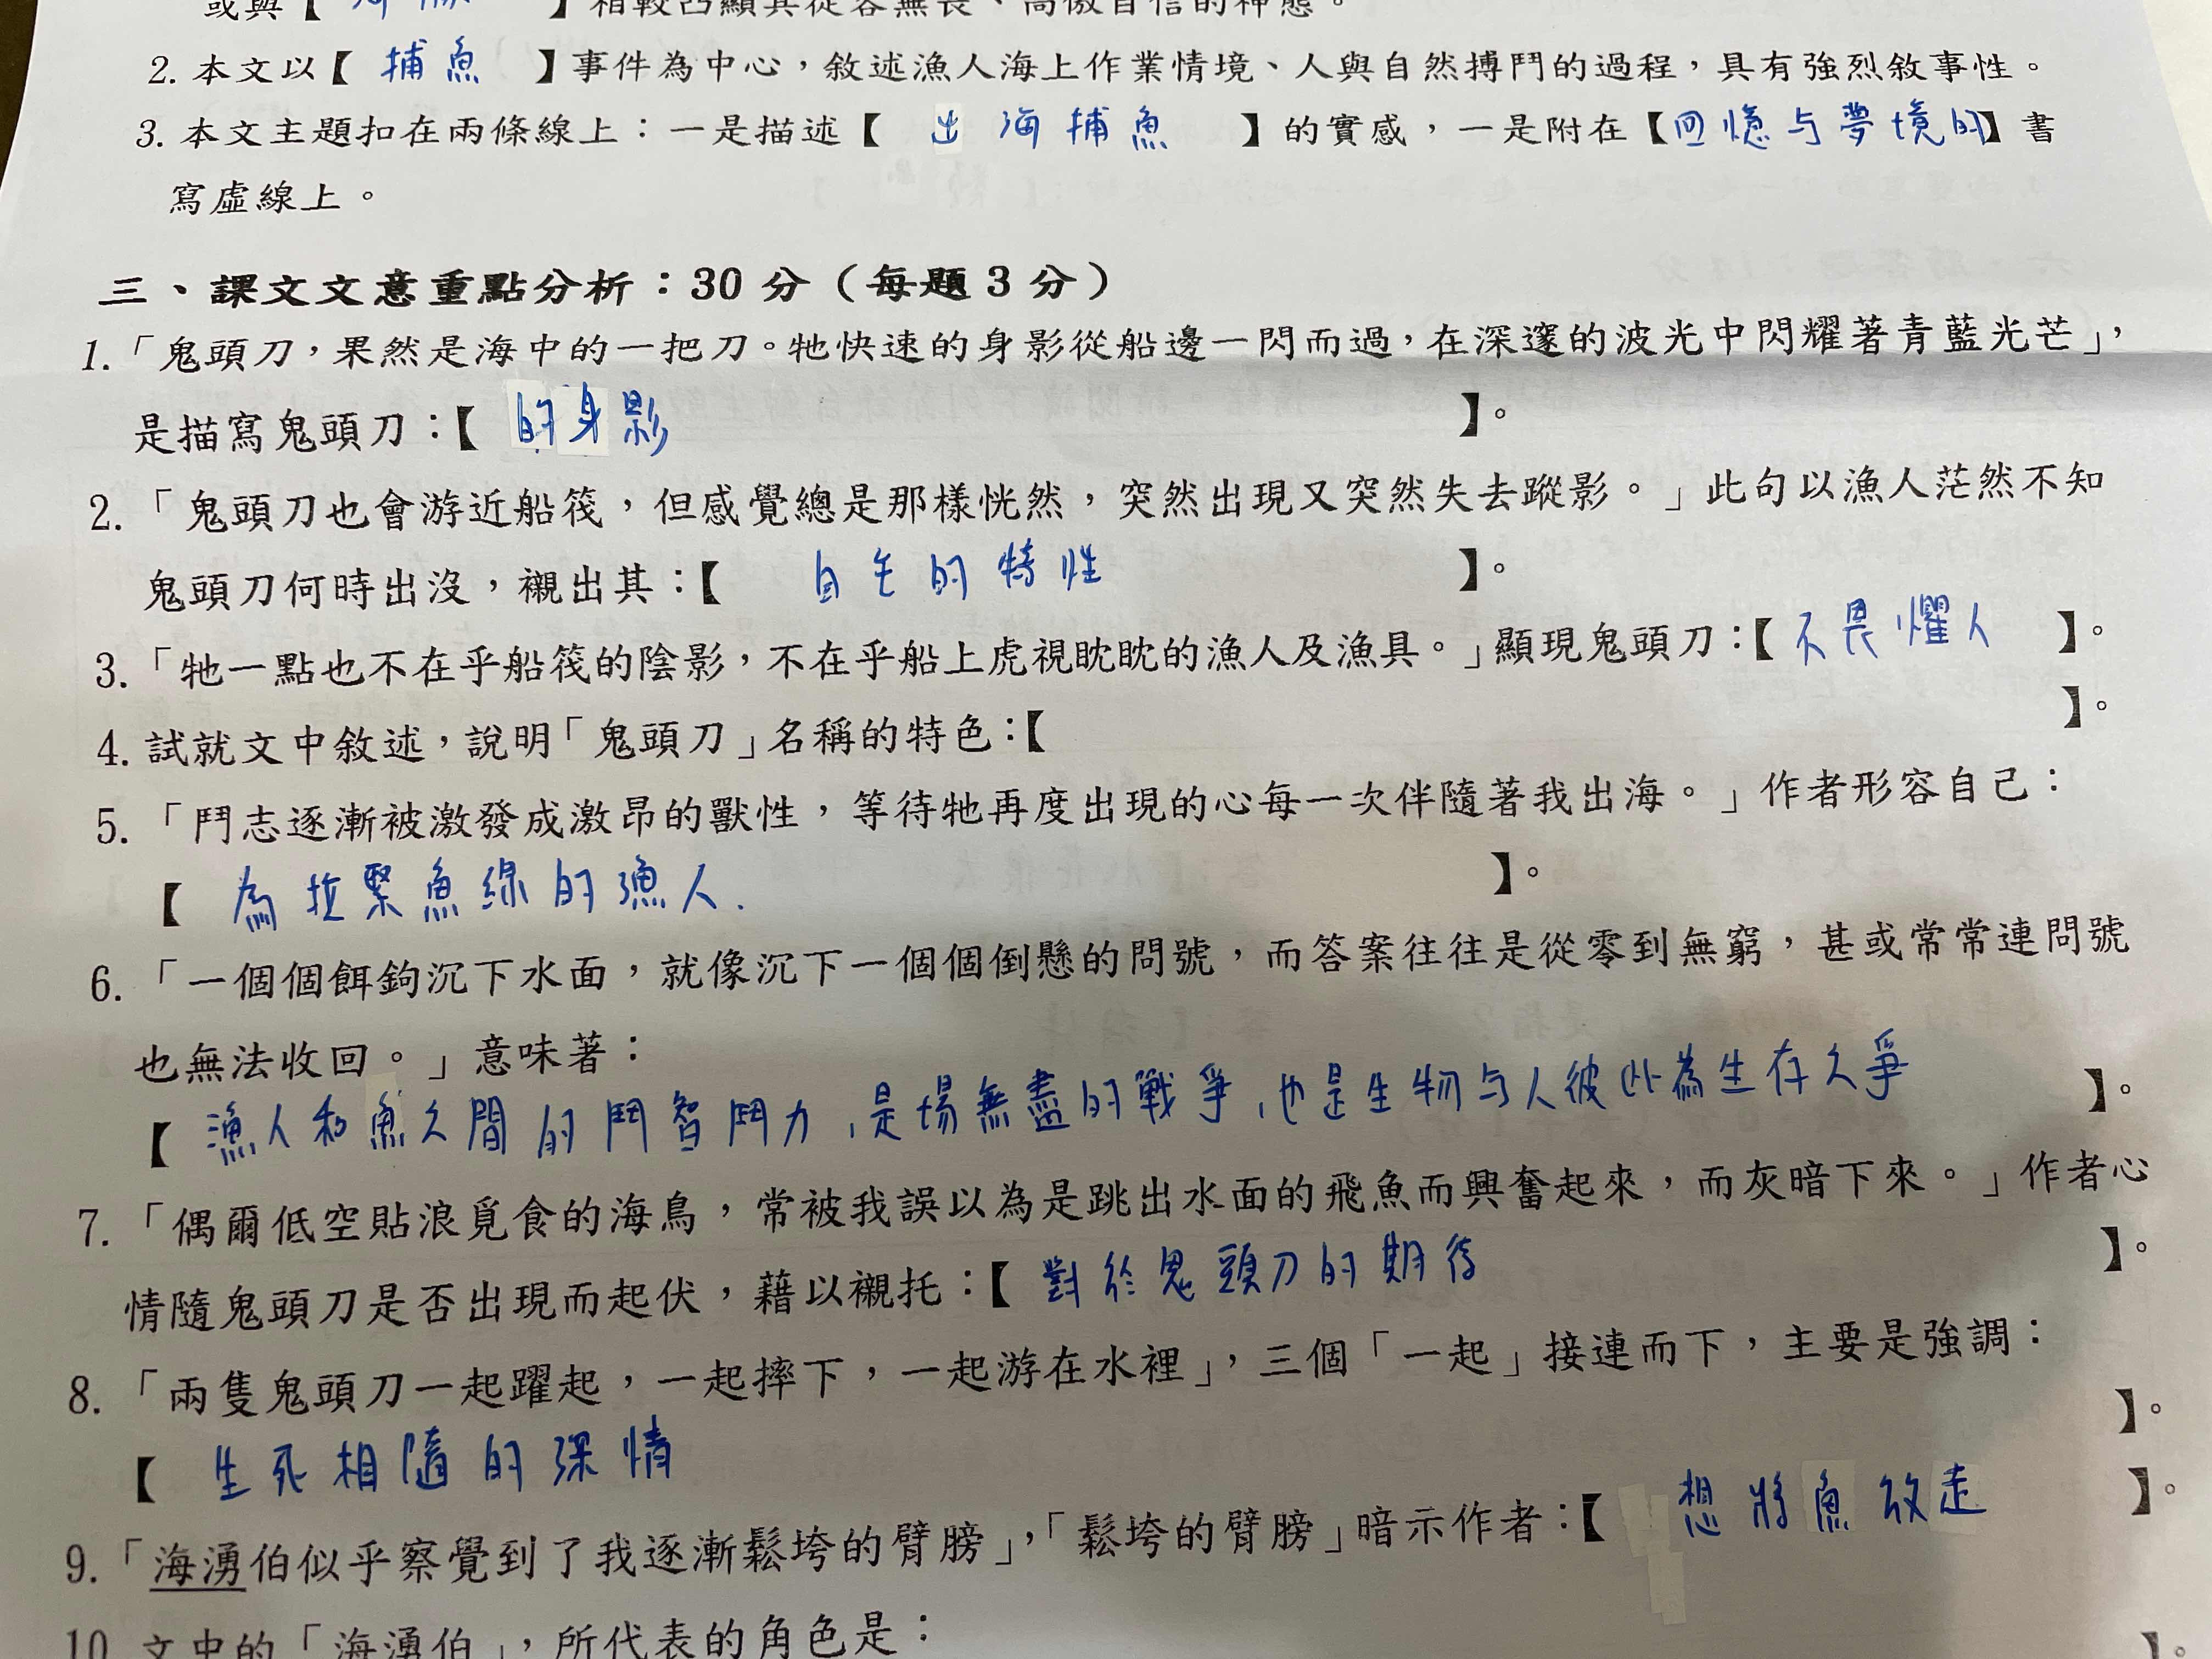 或與【 】相較凸顯其從容無畏、高傲自信的神態。
2. 本文以【 捕魚 】事件為中心，敘述漁人海上作業情境、人與自然搏鬥的過程，具有強烈敘事性。
3. 本文主題扣在兩條線上：一是描述【 出海捕魚 】的實感，一是附在【回憶与夢境的】書
寫虛線上。
三、課文文意重點分析：30 分（每題 3 分）
1.「鬼頭刀，果然是海中的一把刀。牠快速的身影從船邊一閃而過，在深邃的波光中閃耀著青藍光芒」，
是描寫鬼頭刀：【 的身影 】。
2.「鬼頭刀也會游近船筏，但感覺總是那樣恍然，突然出現又突然失去蹤影。」此句以漁人茫然不知
鬼頭刀何時出沒，襯出其：【 自 的特性 】。
3.「牠一點也不在乎船筏的陰影，不在乎船上虎視眈眈的漁人及漁具。」顯現鬼頭刀：【不畏懼人 】。
4. 試就文中敘述，說明「鬼頭刀」名稱的特色：【 】。
5.「鬥志逐漸被激發成激昂的獸性，等待牠再度出現的心每一次伴隨著我出海。」作者形容自己：
【 為拉緊魚線的漁人. 】。
6.「一個個餌鉤沉下水面，就像沉下一個個倒懸的問號，而答案往往是從零到無窮，甚或常常連問號
也無法收回。」意味著：
【 漁人和魚之間的鬥智鬥力，是場無盡的戰爭，也是生物与人彼此為生存之爭 】。
7.「偶爾低空貼浪覓食的海鳥，常被我誤以為是跳出水面的飛魚而興奮起來，而灰暗下來。」作者心
情隨鬼頭刀是否出現而起伏，藉以襯托：【 對於鬼頭刀的期待 】。
8.「兩隻鬼頭刀一起躍起，一起摔下，一起游在水裡」，三個「一起」接連而下，主要是強調：
【 生死相隨的深情 】。
9.「海湧伯似乎察覺到了我逐漸鬆垮的臂膀」，「鬆垮的臂膀」暗示作者：【 想將魚放走 】。
10. 文中的「海湧伯」，所代表的角色是： 】。